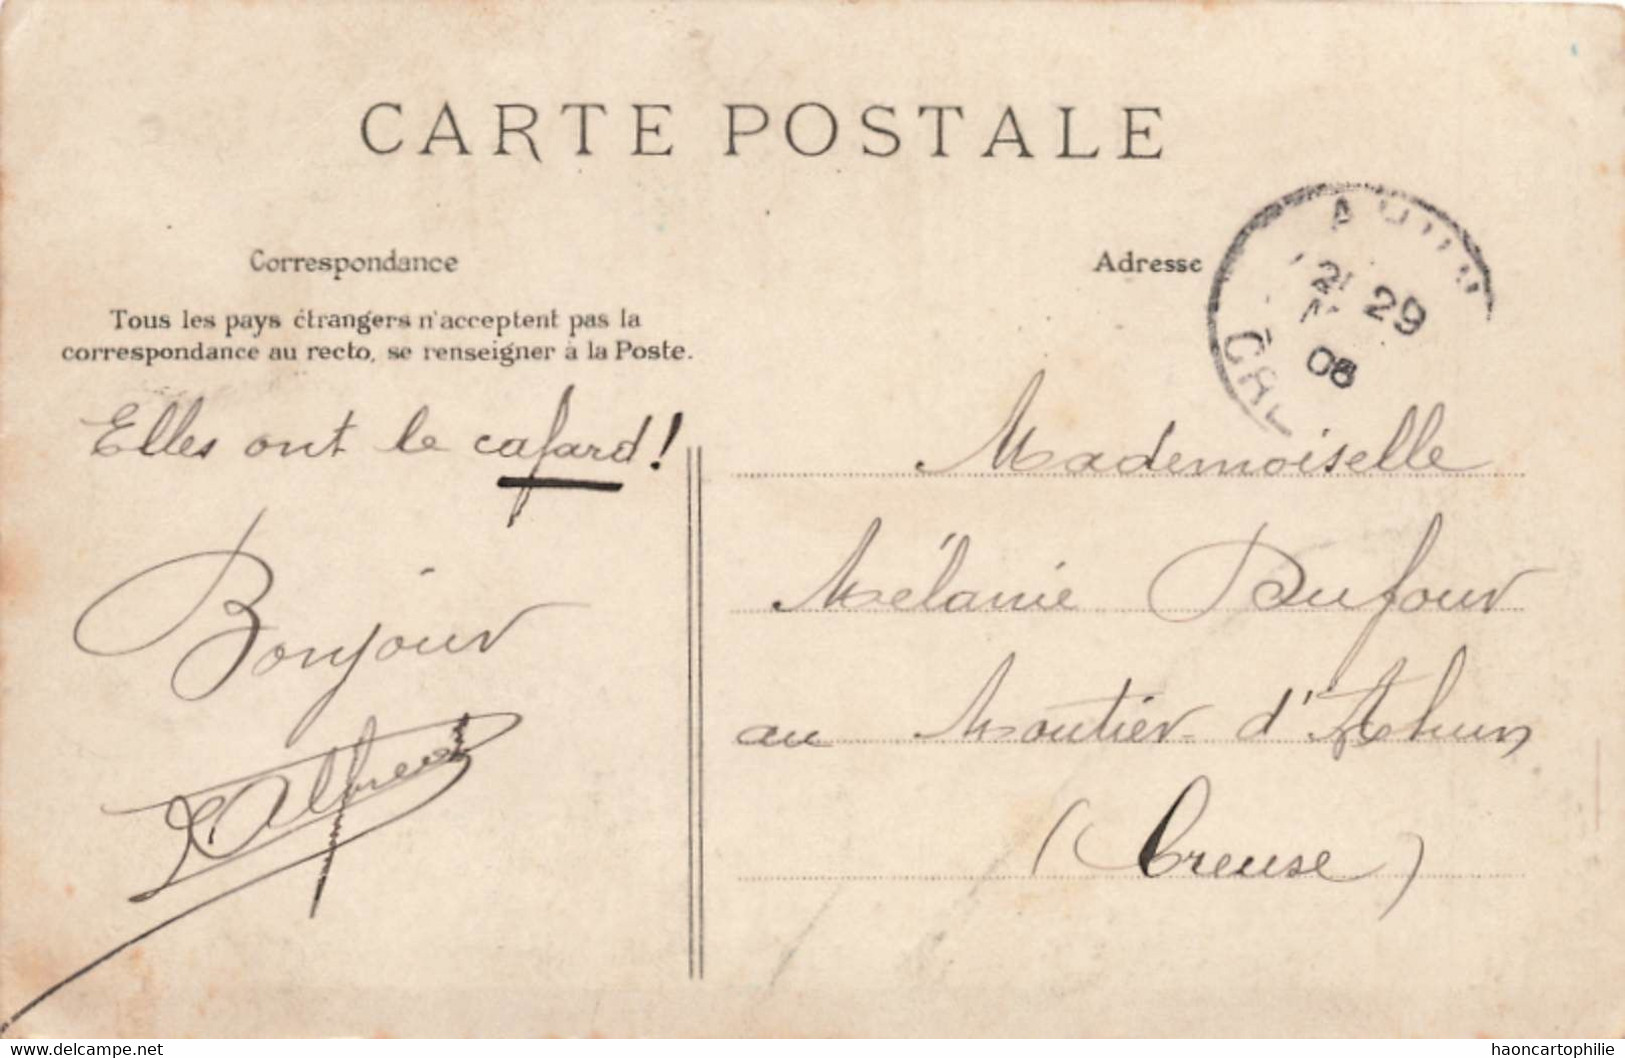 CARTE POSTALE
Correspondance
Tous les pays étrangers n'acceptent pas la
correspondance au recto, se renseigner à la Poste.
Elles ont le cafard!
Bonjour
Alfred
Adresse
29
06
CRE
Mademoiselle
Mélanie Dufour
au Moutier d'Ahun
(Creuse)
https://www.delcampe.net
haoncartophilie